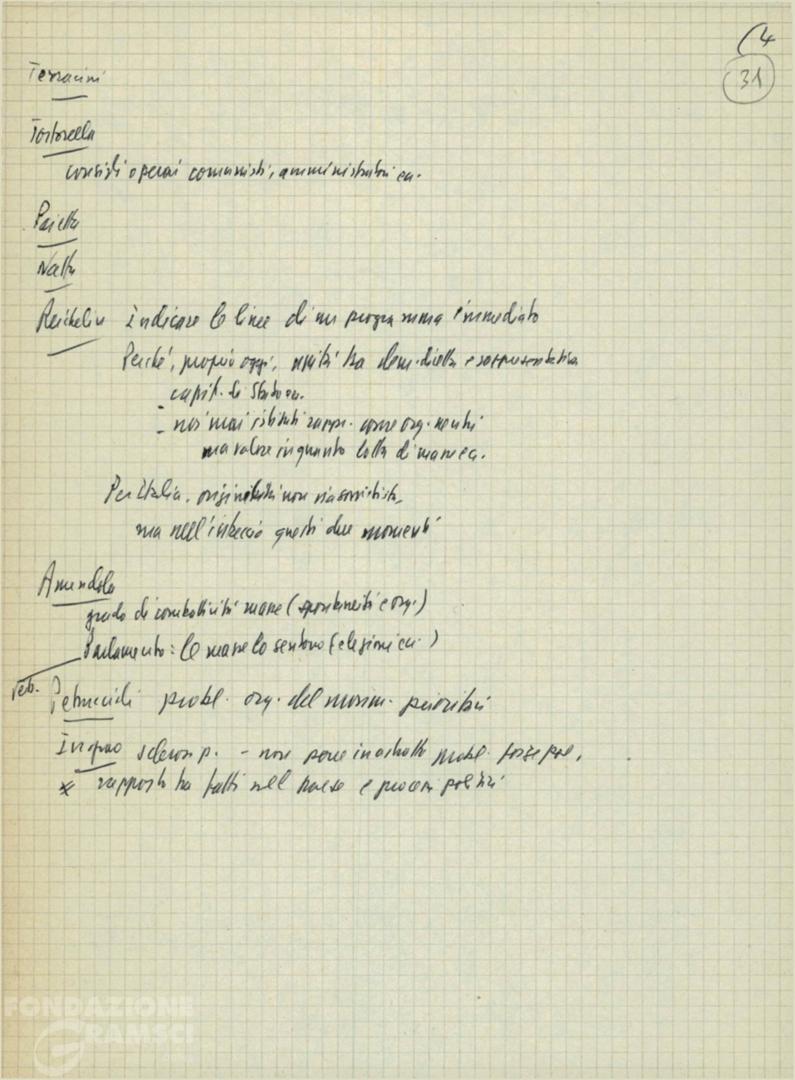 (4
31
Terracini
Tortorella
consigli operai comunisti, amministratori ecc.
Pajetta
Natta
Reichlin Indicare le linee di un programma immediato
Perché, proprio oggi, unità tra dem. diretta e rappresentativa
capit. di Stato ecc.
- noi mai istituti rappr. come org. neutri
ma valore in quanto lotta di massa ecc.
Per Italia, originalità non sta
ma nell'intreccio questi due momenti
Amendola
grado di combattività masse (spontaneità e org.)
Parlamento: le masse lo sentono (elezioni ecc.)
Petruccioli probl. org. del movim. priorità
Ingrao p. - non porre in astratto probl. forze pol.,
* rapporto tra fatti nel paese e processi politici
FONDAZIONE
GRAMSCI